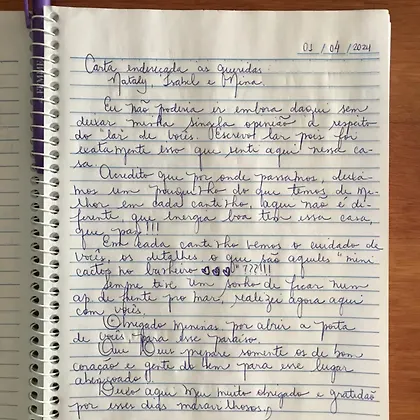 03 / 04 / 2024
Carta endereçada as queridas:
Nataly, Isabel e Mina.
Eu não poderia ir embora daqui sem
deixar minha singela opinião a respeito
do "lar" de vocês. Escrevo lar pois foi
exatamente isso que senti aqui nessa ca-
sa.
Acredito que por onde passamos, deixa-
mos um pouquinho do que temos de me-
lhor em cada cantinho, aqui não é di-
ferente, que energia boa tem essa casa,
que paz!!!
Em cada cantinho vemos o cuidado de
vocês, os detalhes, o que são aqueles "mini
cactos no banheiro ♡♡♡" ???!!!
Sempre tive um sonho de ficar num
ap. de frente pro mar, realizei agora aqui
com vocês.
Obrigado meninas por abrir a porta
de vocês, para esse paraíso.
Que Deus prepare somente os de bom
coração e gente do bem para esse lugar
abençoado.
Deixo aqui meu muito obrigado e gratidão
por esses dias maravilhosos,